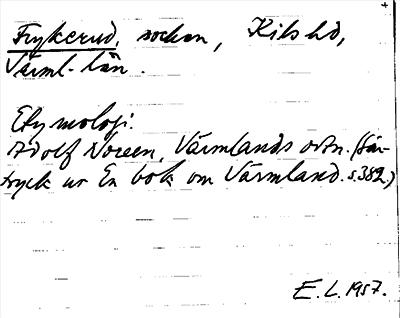 Frykerud, socken, Kils hd,
Värml. län.
Etymologi.
Adolf Noreen, Värmlands ortn. (Sär-
tryck ur En bok om Värmland. s. 382.)
E. L. 1957.